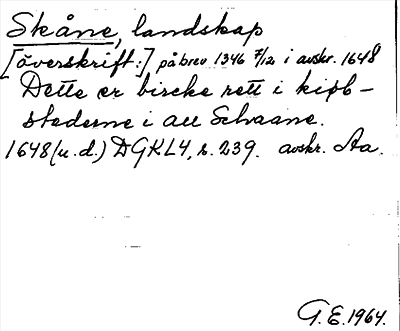 Skåne, landskap
[överskrift:] på brev 1346 7/12 i avskr. 1648
Dette er bircke rett i kiøb-
stederne i all Schaane.
1648 (u.d.) DGKL4, s. 239. avskr. Aa.
G.E. 1964.